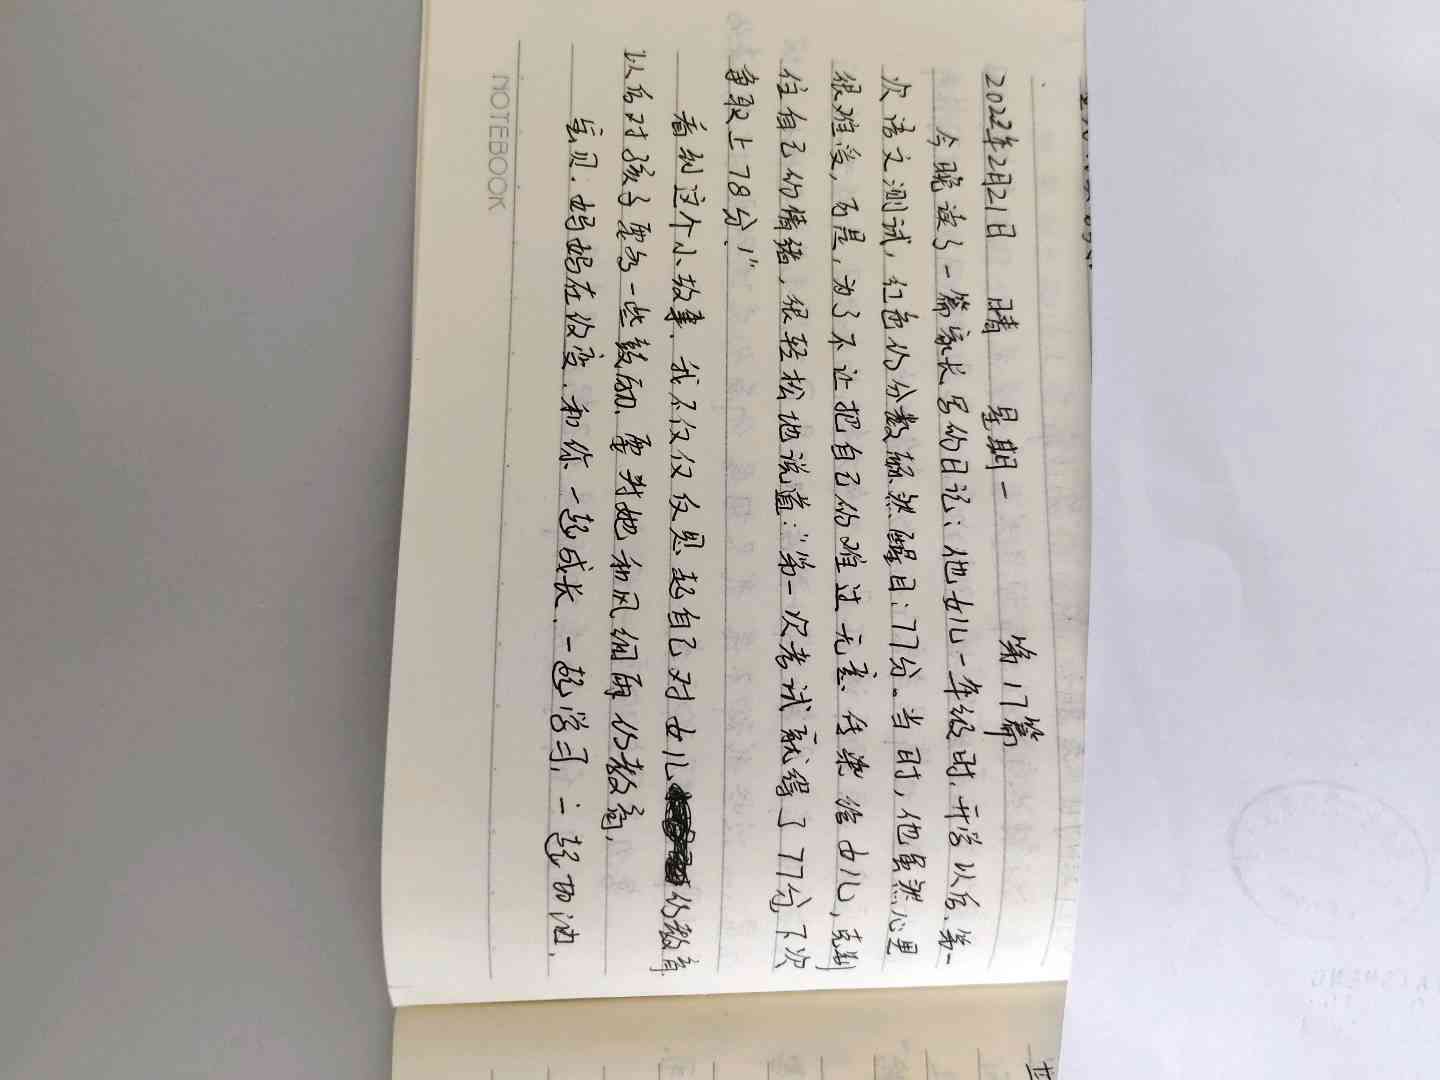 2022年2月21日 晴 星期一 第17篇
今晚读了一篇家长写的日记：他女儿一年级时，开学以后，第一
次语文测试，红色的分数赫然醒目：77分。当时，他虽然心里
很难受，可是，为了不让把自己的难过无意传染给女儿，克制
住自己的情绪，很轻松地说道：“第一次考试就得了77分，下次
争取上78分！”
看到这个小故事，我不仅仅反思起自己对女儿的教育
以后对孩子要多一些鼓励，要对她和风细雨的教育，
宝贝：妈妈在改变，和你一起成长，一起学习，一起加油，
NOTEBOOK